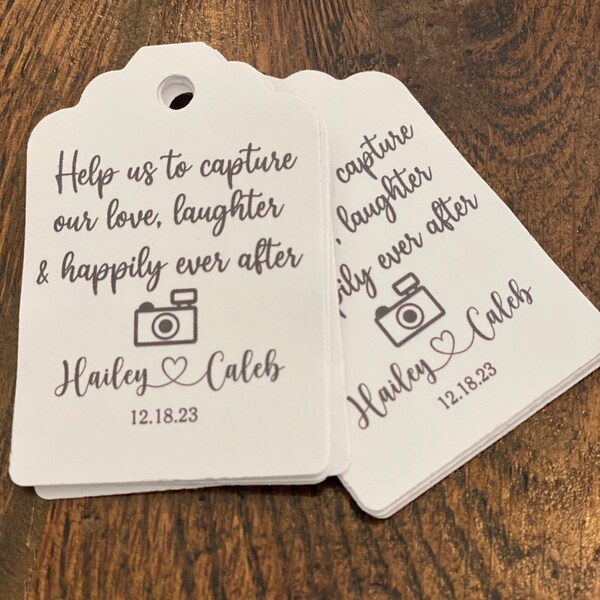 Help us to capture
our love, laughter
& happily ever after
Hailey Caleb
12.18.23
capture
, laughter
pily ever after
Hailey Caleb
12.18.23